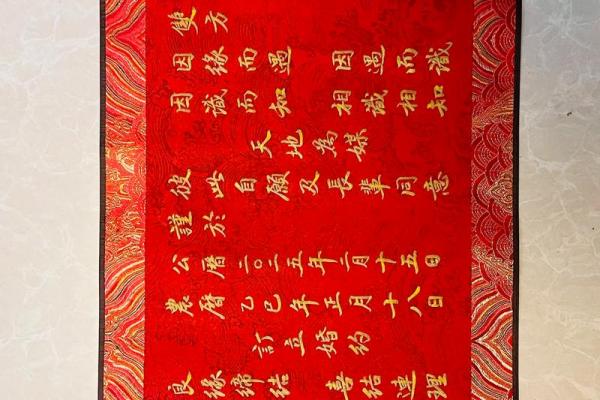 雙方
因緣而遇 因遇而識
因識而知 相識相知
天地為媒
彼此自願及長輩同意
謹於
公曆二〇二五年二月十五日
農曆乙巳年正月十八日
訂立婚約
良緣締結 喜結連理